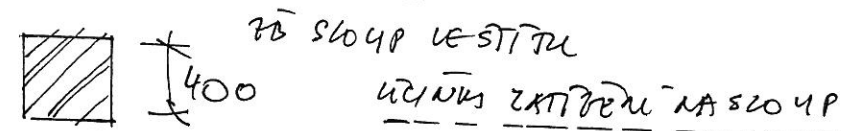 ŽB SLOUP VE ŠTÍTU
400
ÚČINKY ZATÍŽENÍ NA SLOUP